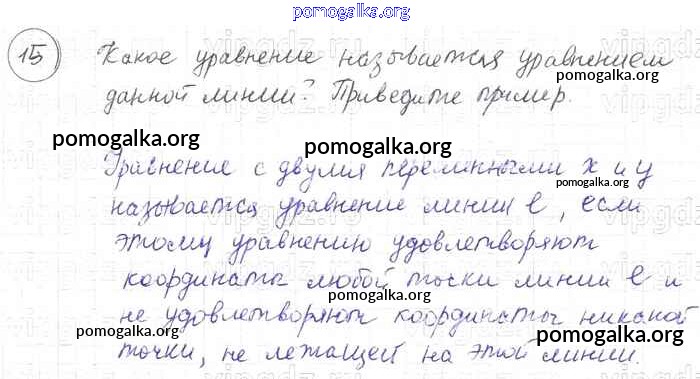 pomogalka.org
15 Какое уравнение называется уравнением
pomogalka.org
данной линии? Приведите пример.
pomogalka.org pomogalka.org
Уравнение с двумя переменными x и y
pomogalka.org
называется уравнение линии l, если
этому уравнению удовлетворяют
координаты любой точки линии l и
pomogalka.org
не удовлетворяют координаты никакой
pomogalka.org pomogalka.org
точки, не лежащей на этой линии.